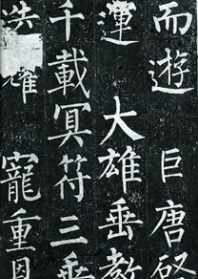 而遊 巨唐啓
運 大雄垂教
千載冥符三乘
迭耀 寵重恩